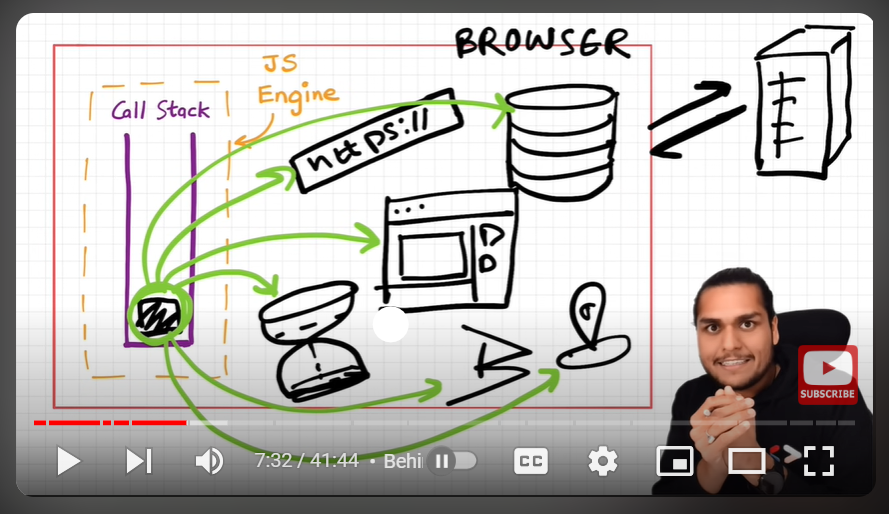 BROWSER
JS
Engine
Call Stack
https://
SUBSCRIBE
7:32 / 41:44 • Behi
CC